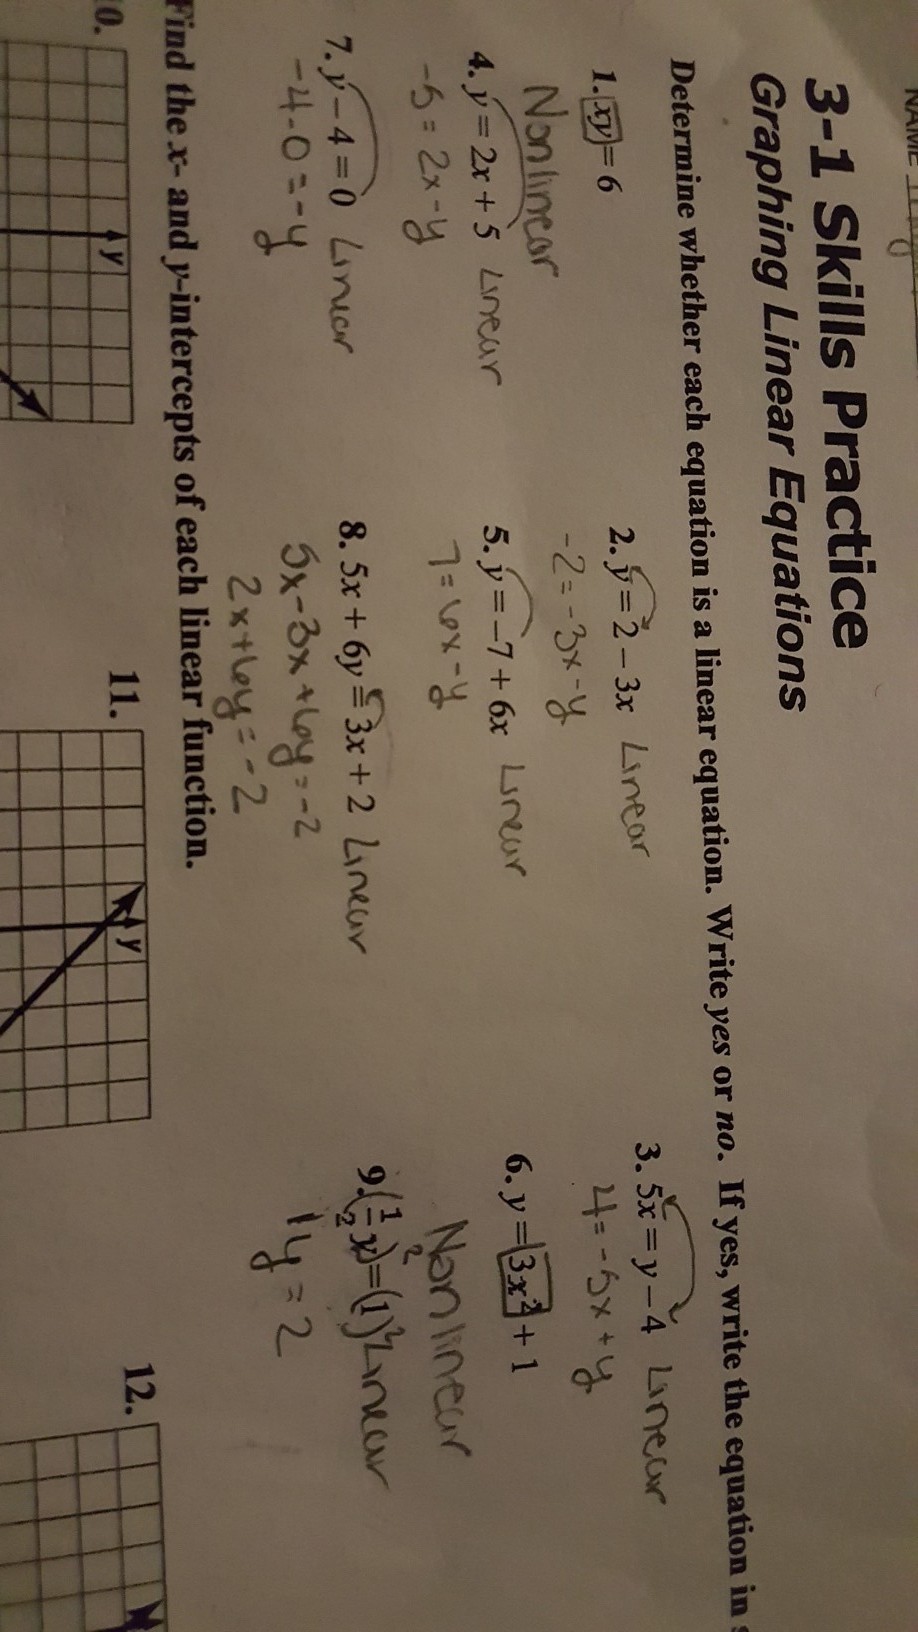 NAME
3-1 Skills Practice
Graphing Linear Equations
Determine whether each equation is a linear equation. Write yes or no. If yes, write the equation in
1. xy = 6
Nonlinear
2. y = 2 – 3x Linear
-2 = -3x-y
3. 5x = y – 4 Linear
4 = -5x + y
4. y = 2x + 5 Linear
-5 = 2x-y
5. y = –7 + 6x Linear
7 = 6x-y
6. y = 3x² + 1
Nonlinear
7. y – 4 = 0 Linear
-4-0 = -y
8. 5x + 6y = 3x + 2 Linear
5x-3x+6y = -2
2x+6y = -2
9. (1/2 y)² = (1)² Linear
1y = 2
Find the x- and y-intercepts of each linear function.
0.
y
11.
y
12.